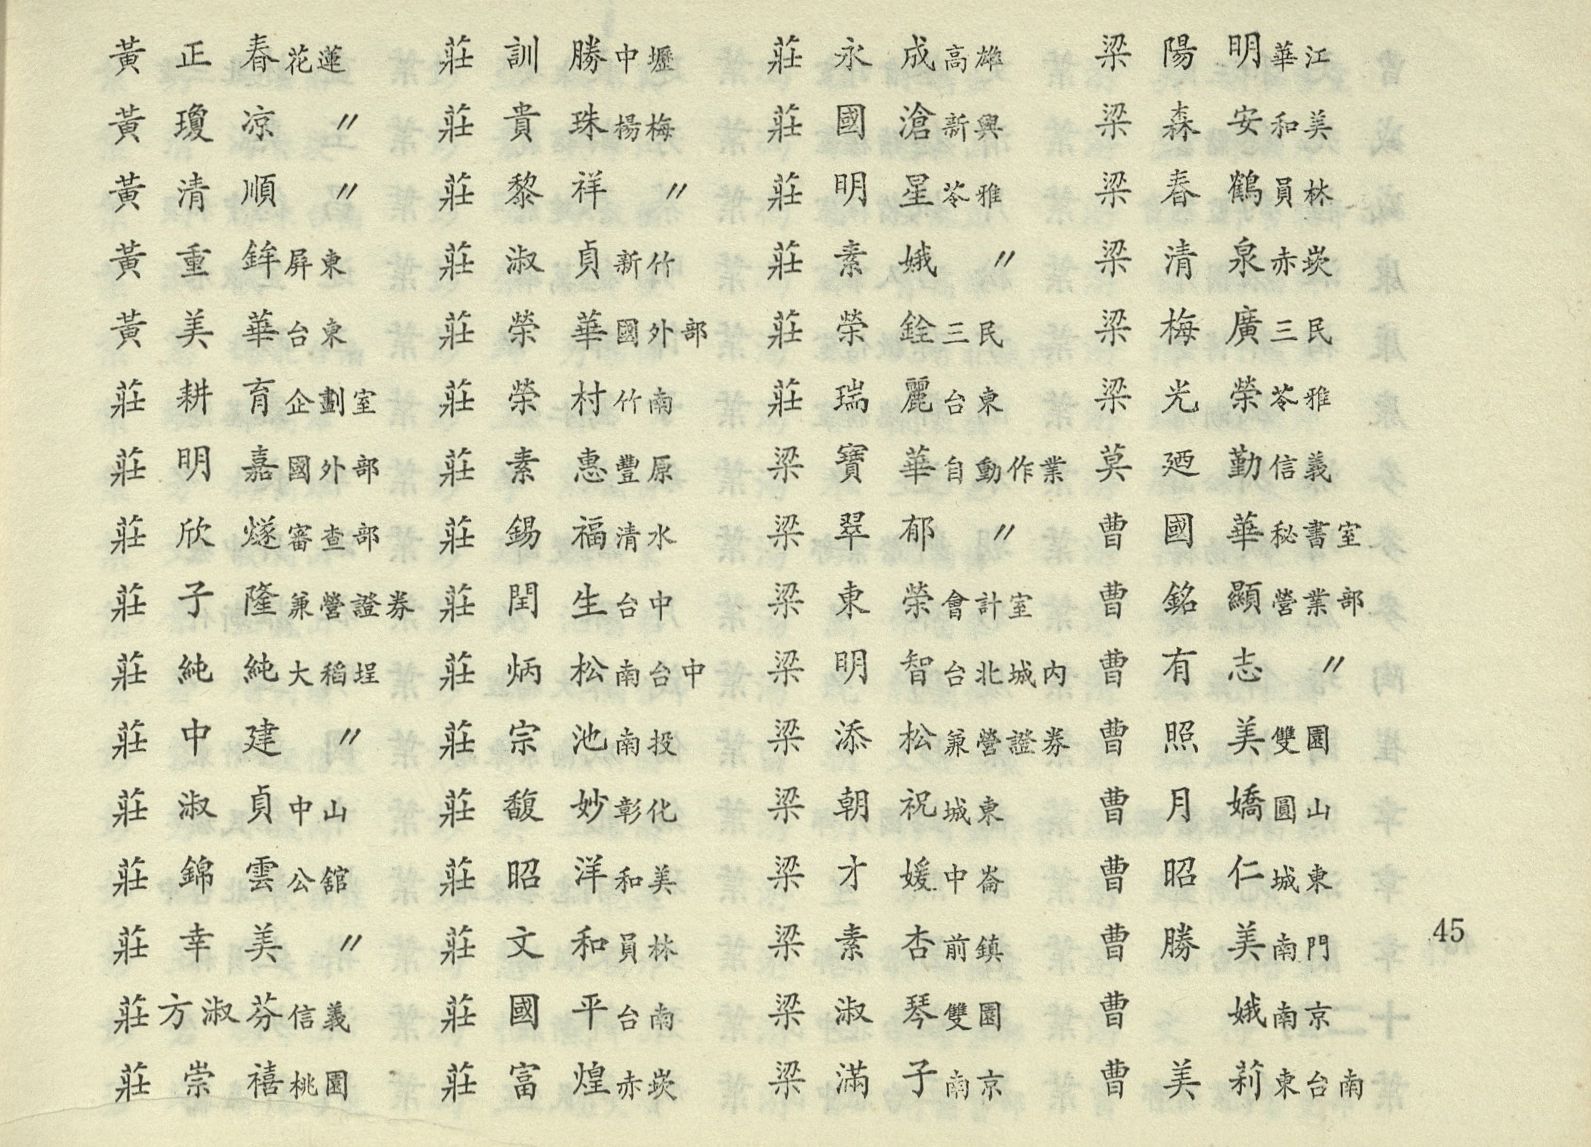 黃正春花蓮
黃瓊凉〃
黃清順〃
黃重鉾屏東
黃美華台東
莊耕育企劃室
莊明嘉國外部
莊欣燧審查部
莊子隆兼營證券
莊純純大稻埕
莊中建〃
莊淑貞中山
莊錦雲公舘
莊幸美〃
莊方淑芬信義
莊崇禧桃園
莊訓勝中壢
莊貴珠楊梅
莊黎祥〃
莊淑貞新竹
莊榮華國外部
莊榮村竹南
莊素惠豐原
莊錫福清水
莊閏生台中
莊炳松南台中
莊宗池南投
莊馥妙彰化
莊昭洋和美
莊文和員林
莊國平台南
莊富煌赤崁
莊永成高雄
莊國滄新興
莊明星苓雅
莊素娥〃
莊榮銓三民
莊瑞麗台東
梁寶華自動作業
梁翠郁〃
梁東榮會計室
梁明智台北城內
梁添松兼營證券
梁朝祝城東
梁才媛中崙
梁素杏前鎮
梁淑琴雙園
梁滿子南京
梁陽明華江
梁森安和美
梁春鶴員林
梁清泉赤崁
梁梅廣三民
梁光榮苓雅
莫廼勤信義
曹國華秘書室
曹銘顯營業部
曹有志〃
曹照美雙園
曹月嬌圓山
曹昭仁城東
曹勝美南門
曹娥南京
曹美莉東台南
45